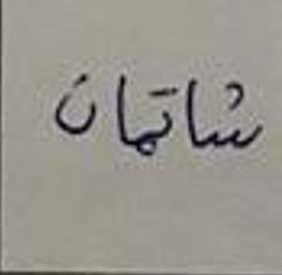 شاتمان